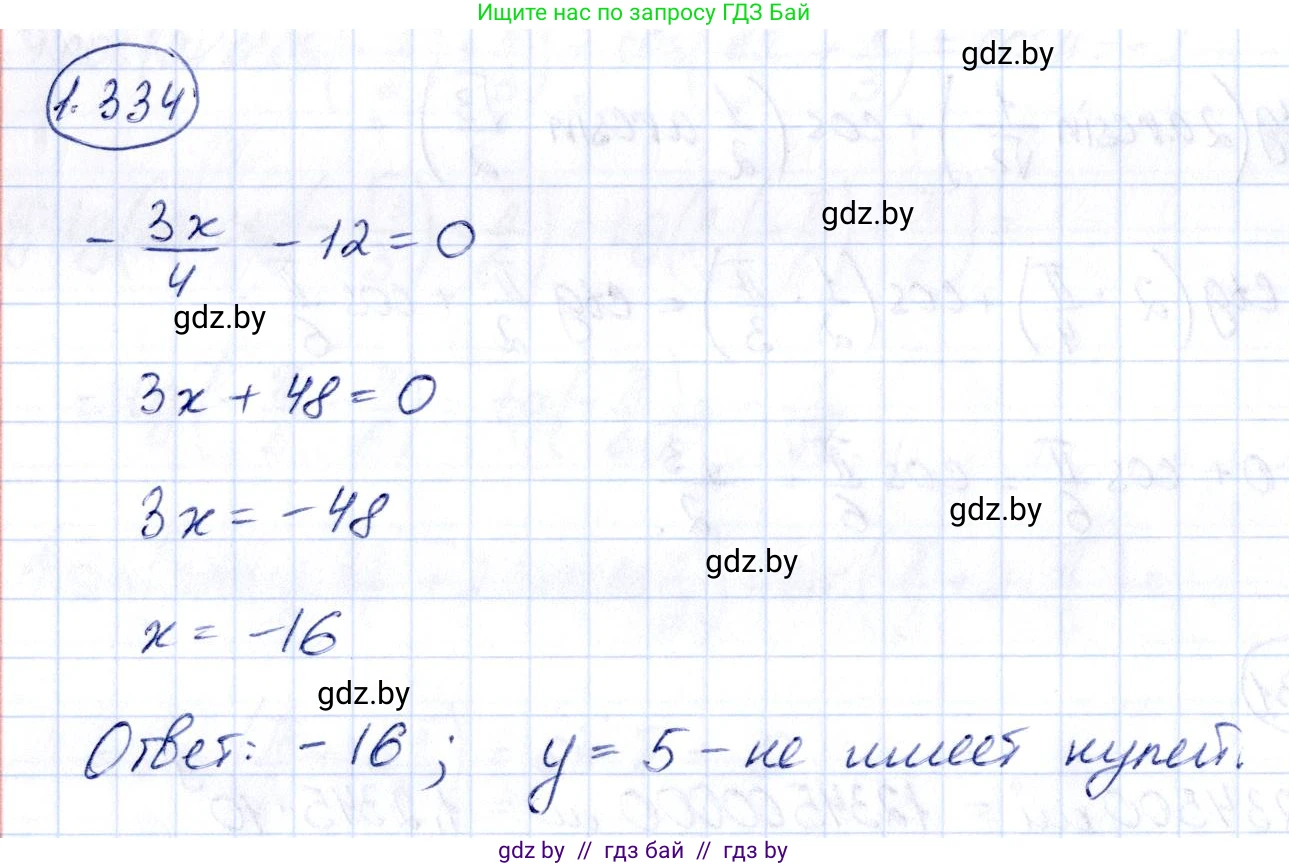 Ищите нас по запросу ГДЗ Бай
gdz.by
1.334
gdz.by
- 3x/4 - 12 = 0
gdz.by
3x + 48 = 0
3x = -48
gdz.by
gdz.by
x = -16
gdz.by
Ответ: -16; y = 5 - не имеет нулей.
gdz.by // гдз бай // гдз by